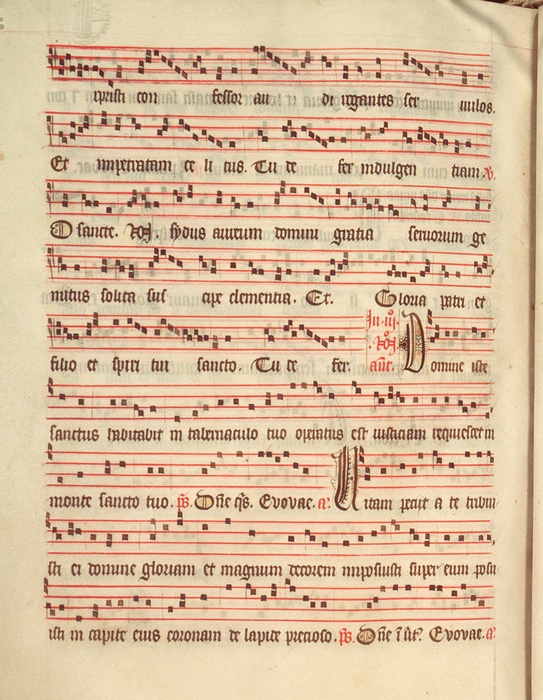 xpristi con fessor au di rogantes ser uulos.
Et impetratam ce li tus. Tu de fer indulgen tiam. V.
O sancte. W. sydus aureum domini gratia seruorum ge
mitus solita sus cipe clementia. Et. Gloria patri et
filio et spiri tui sancto. Tu de fer. In. iij. W. ant. Domine iste
sanctus habitabit in tabernaculo tuo operatus est iusticiam requiescet in
monte sancto tuo. ps. Dñe q̃s. Evovae. a. Uitam petiit a te tribui
sti ei domine gloriam et magnum decorem imposuisti super eum posu
isti in capite eius coronam de lapide precioso. ps. Dñe ĩ ũt. Evovae. a.